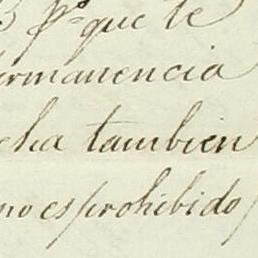 p.º que le
ermanencia
cha tambien
no es prohibido